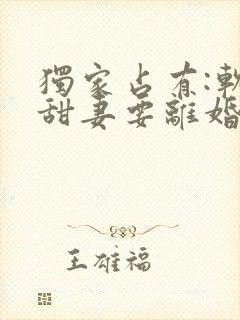 獨家占有:軟
甜妻要離婚
王雄福